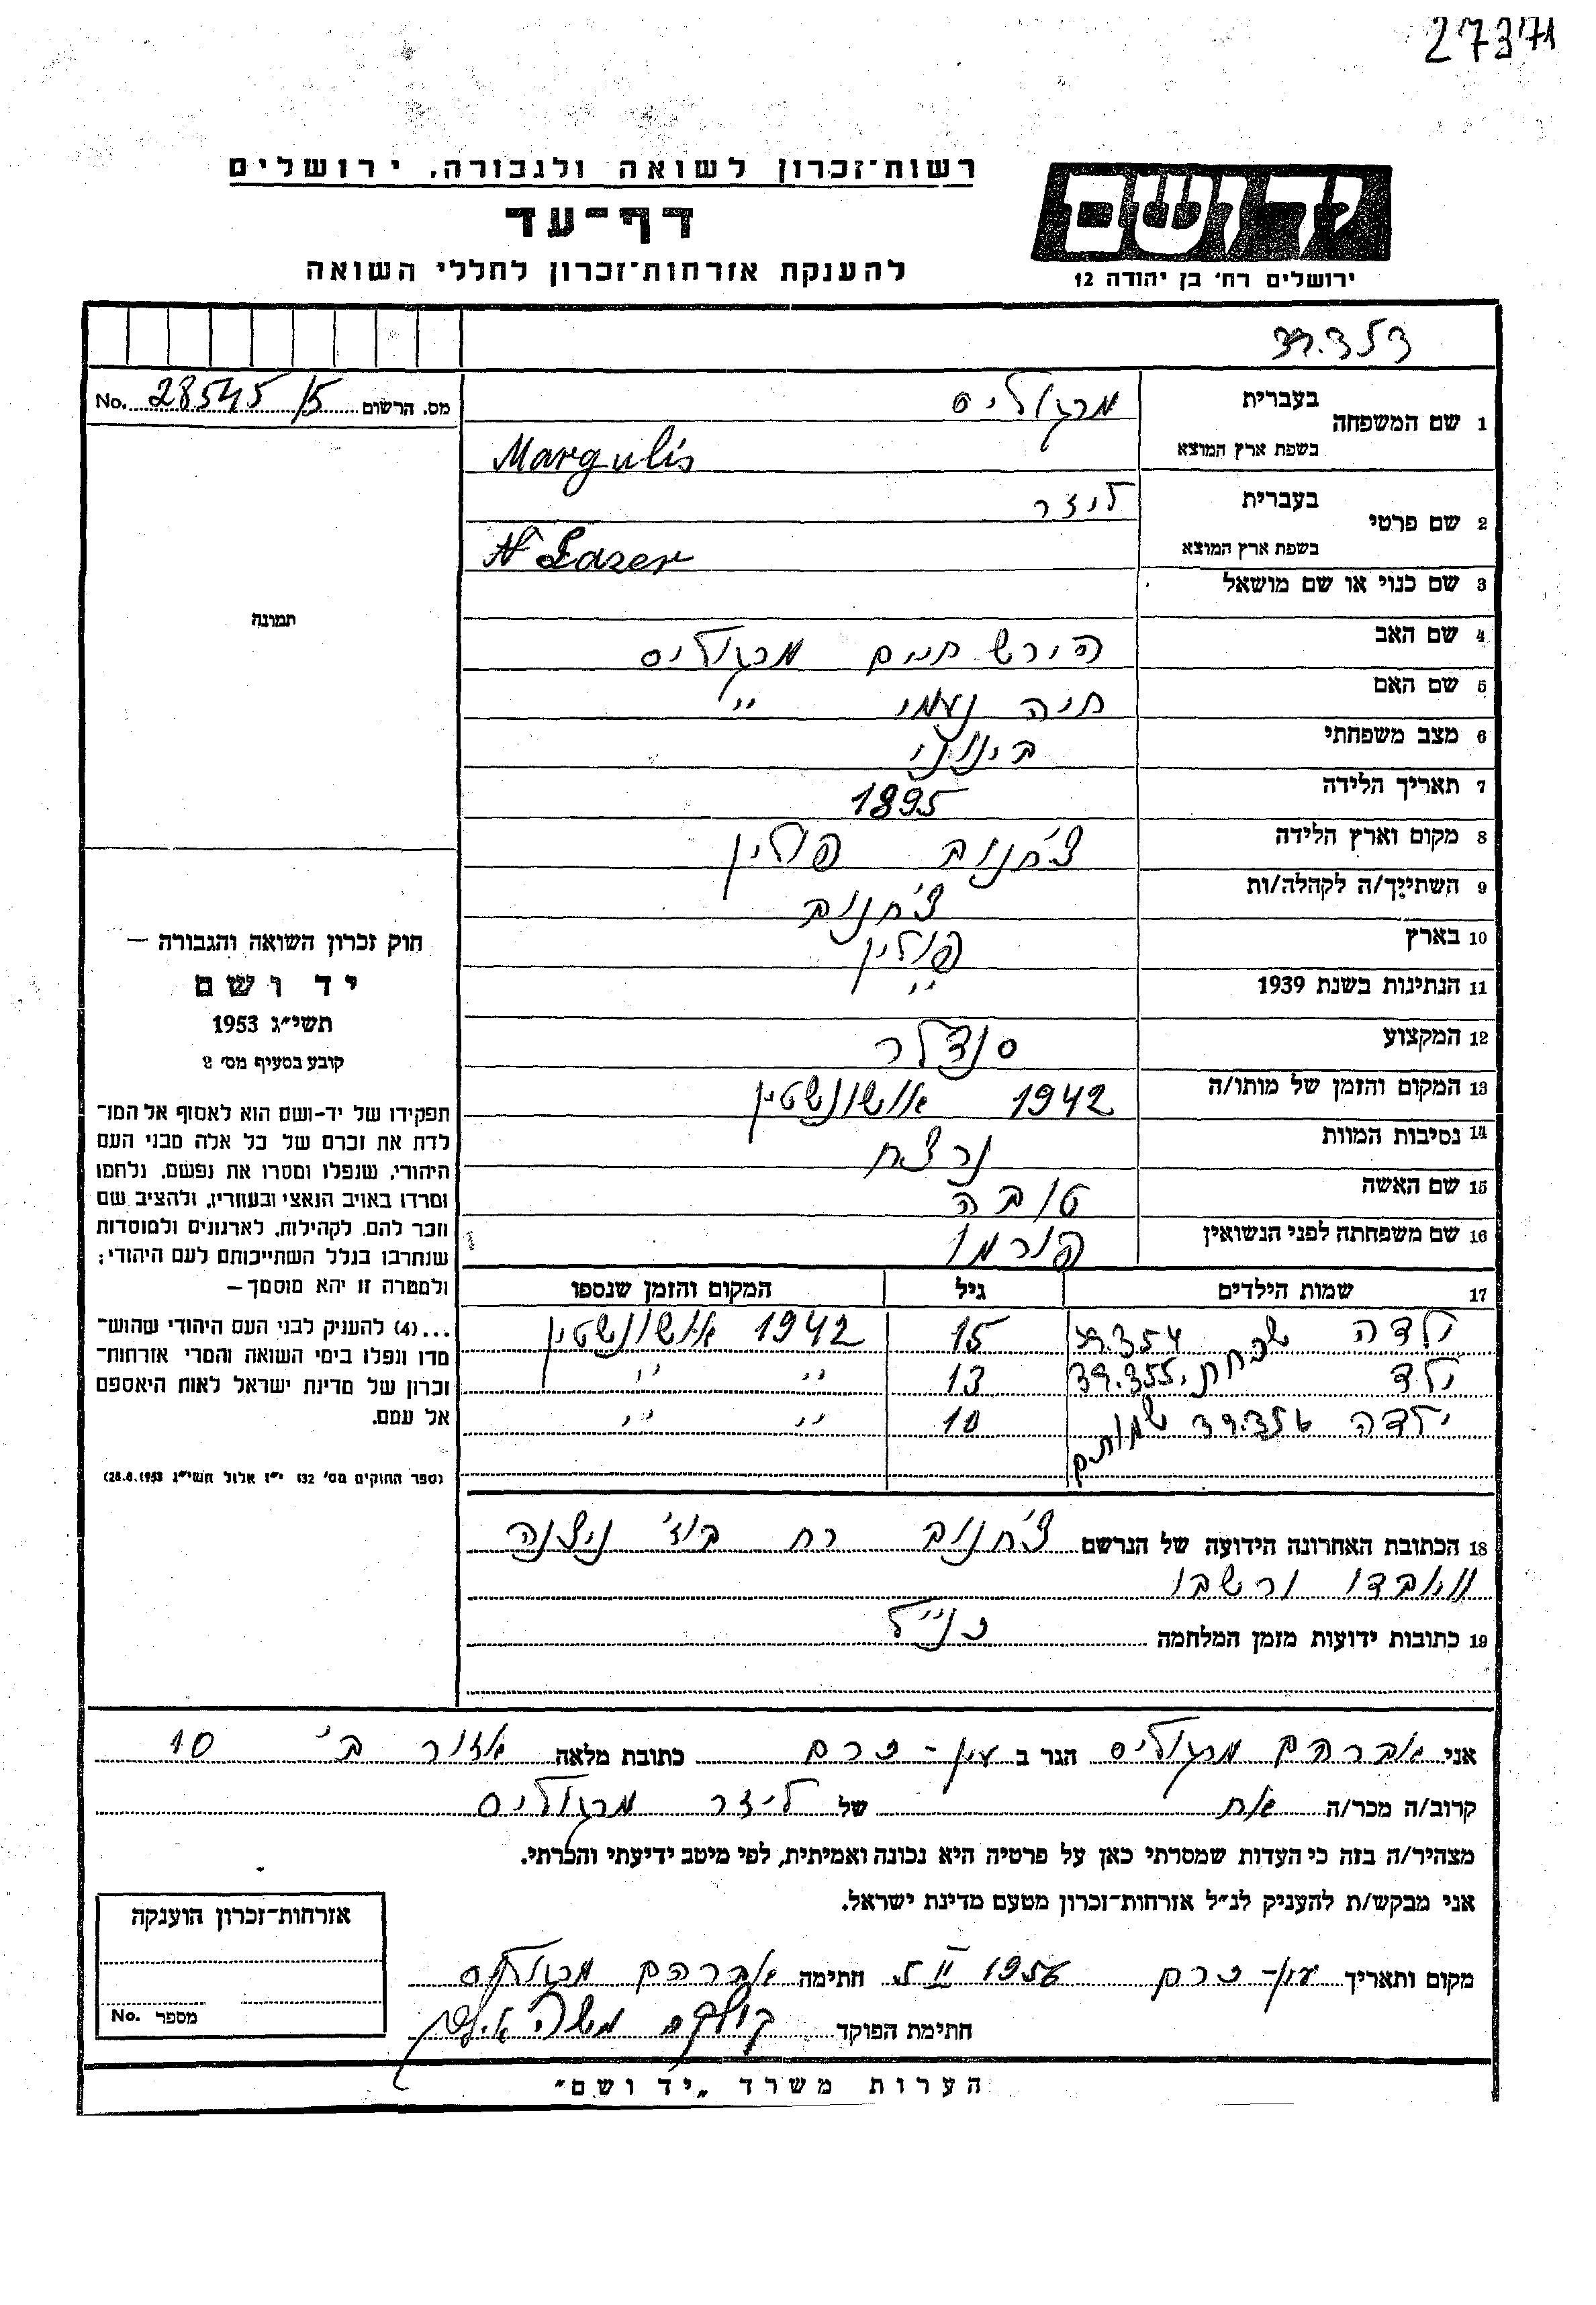 27371
רשות־זכרון לשואה ולגבורה, ירושלים
דף־עד
להענקת אזרחות־זכרון לחללי השואה
יד ושם
ירושלים רח' בן יהודה 12
39.353
No. 28545/5 מס. הרשום
1 שם המשפחה בעברית מרגוליס
בשפת ארץ המוצא Margulis
2 שם פרטי בעברית ליזר
בשפת ארץ המוצא Lazer
3 שם כנוי או שם מושאל
תמונה
4 שם האב הירש חיים מרגוליס
5 שם האם חיה נעמי "
6 מצב משפחתי בינוני
7 תאריך הלידה 1895
8 מקום וארץ הלידה צ'חנוב פולין
9 השתייך/ה לקהלה/ות צ'חנוב
10 בארץ פולין
11 הנתינות בשנת 1939 "
12 המקצוע סנדלר
13 המקום והזמן של מותו/ה 1942 אושונשטין
14 נסיבות המוות נרצח
15 שם האשה טובה
16 שם משפחתה לפני הנשואין פורמן
17 שמות הילדים גיל המקום והזמן שנספו
ילדה 39.354 שכחתי 15 1942 אושונשטין
ילד 39.355 13 " "
ילדה 39.356 שמותם 10 " "
18 הכתובת האחרונה הידועה של הנרשם צ'חנוב רח
19 כתובות ידועות מזמן המלחמה כנ"ל
חוק זכרון השואה והגבורה —
יד ושם
תשי"ג 1953
קובע בסעיף מס' 2
תפקידו של יד-ושם הוא לאסוף אל המו־
לדת את זכרם של כל אלה מבני העם
היהודי, שנפלו ומסרו את נפשם, נלחמו
ומרדו באויב הנאצי ובעוזריו, ולהציב שם
וזכר להם, לקהילות, לארגונים ולמוסדות
שנחרבו בגלל השתייכותם לעם היהודי;
ולמטרה זו יהא מוסמך —
...(4) להעניק לבני העם היהודי שהוש־
מדו ונפלו בימי השואה והמרי אזרחות־
זכרון של מדינת ישראל לאות היאספם
אל עמם.
(ספר החוקים מס' 132 י"ז אלול תשי"ג 28.8.1953)
אני אברהם מרגוליס הגר ב עין-כרם כתובת מלאה אזור ב' 10
קרוב/ה מכר/ה אח של ליזר מרגוליס
מצהיר/ה בזה כי העדות שמסרתי כאן על פרטיה היא נכונה ואמיתית, לפי מיטב ידיעתי והכרתי.
אני מבקש/ת להעניק לנ"ל אזרחות־זכרון מטעם מדינת ישראל.
מקום ותאריך עין-כרם 5 II 1956 חתימה אברהם מרגוליס
חתימת הפוקד
אזרחות־זכרון הוענקה
No. מספר
הערות משרד „יד ושם"